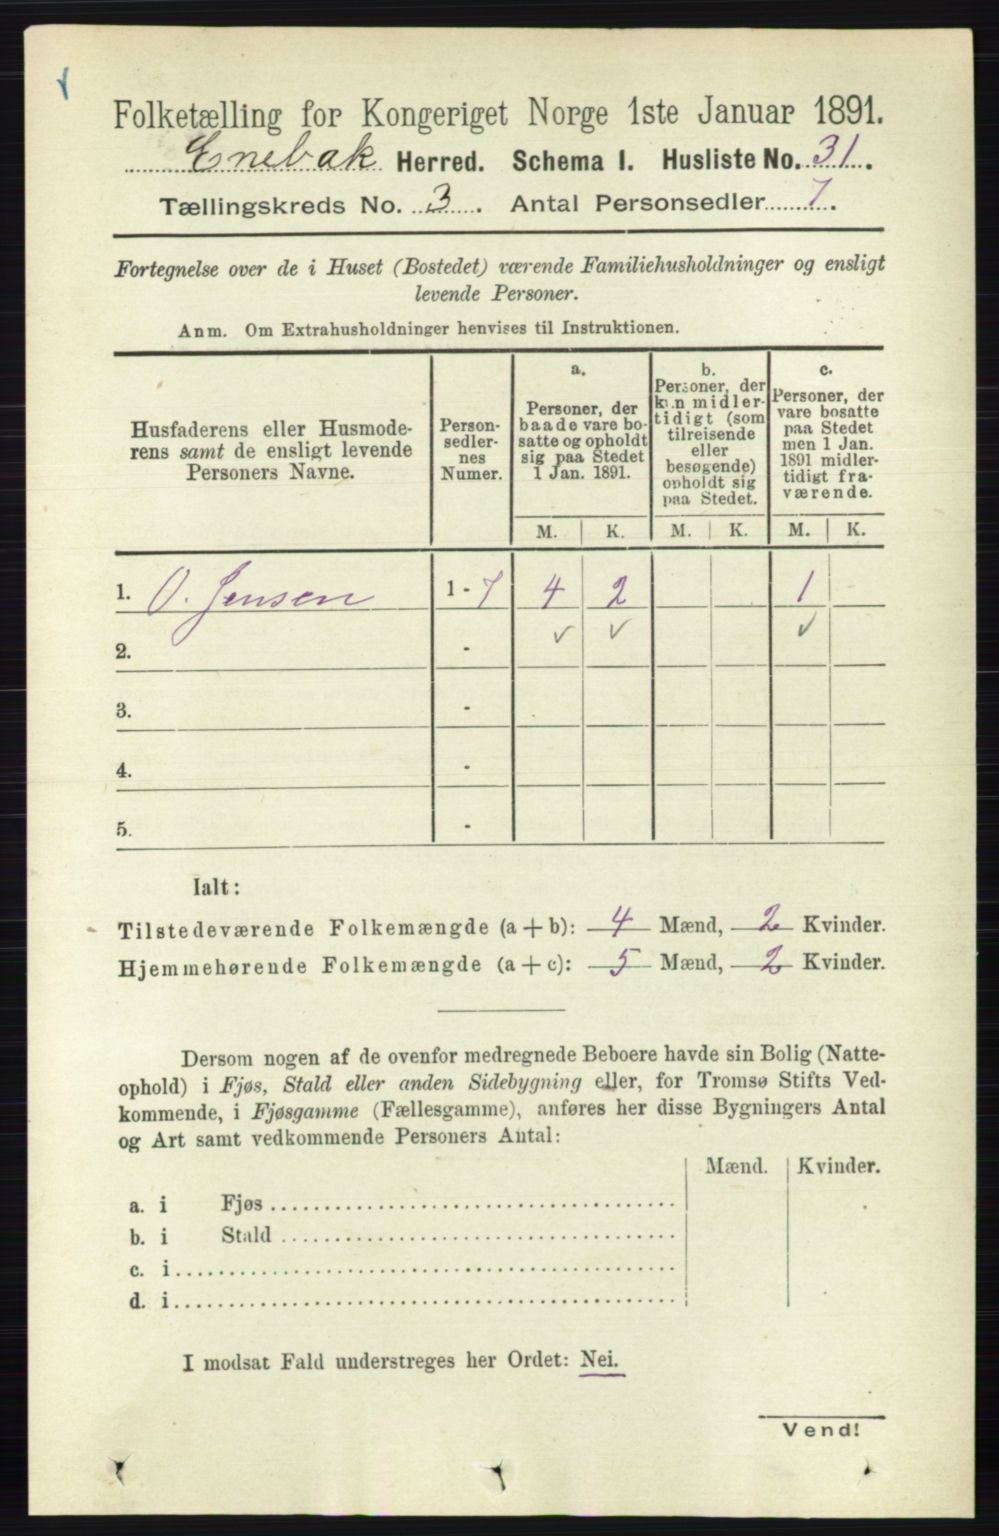 Folketælling for Kongeriget Norge 1ste Januar 1891.
Enebak Herred. Schema I. Husliste No. 31.
Tællingskreds No. 3. Antal Personsedler 7.
Fortegnelse over de i Huset (Bostedet) værende Familiehusholdninger og ensligt
levende Personer.
Anm. Om Extrahusholdninger henvises til Instruktionen.
Husfaderens eller Husmode-
rens samt de ensligt levende
Personers Navne.
Person-
sedler-
nes
Numer.
a.
Personer, der
baade vare bo-
satte og opholdt
sig paa Stedet
1 Jan. 1891.
b.
Personer, der
kun midler-
tidigt (som
tilreisende
eller
besøgende)
opholdt sig
paa Stedet.
c.
Personer, der
vare bosatte
paa Stedet
men 1 Jan.
1891 midler-
tidigt fra-
værende.
M. K. M. K. M. K.
1. O. Jensen 1 - 7 4 2 1
2. - ✓ ✓ ✓
3. -
4. -
5. -
Ialt:
Tilstedeværende Folkemængde (a + b): 4 Mænd, 2 Kvinder.
Hjemmehørende Folkemængde (a + c): 5 Mænd, 2 Kvinder.
Dersom nogen af de ovenfor medregnede Beboere havde sin Bolig (Natte-
ophold) i Fjøs, Stald eller anden Sidebygning eller, for Tromsø Stifts Ved-
kommende, i Fjøsgamme (Fællesgamme), anføres her disse Bygningers Antal
og Art samt vedkommende Personers Antal:
Mænd. Kvinder.
a. i Fjøs
b. i Stald
c. i
d. i
I modsat Fald understreges her Ordet: Nei.
Vend!